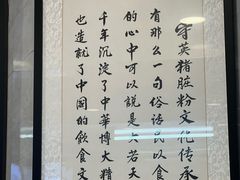 守英猪脏粉文化传承
有那么一句俗语民以食
的心中可以说是大若天
千年沉淀了中华博大精
也造就了中国的饮食文